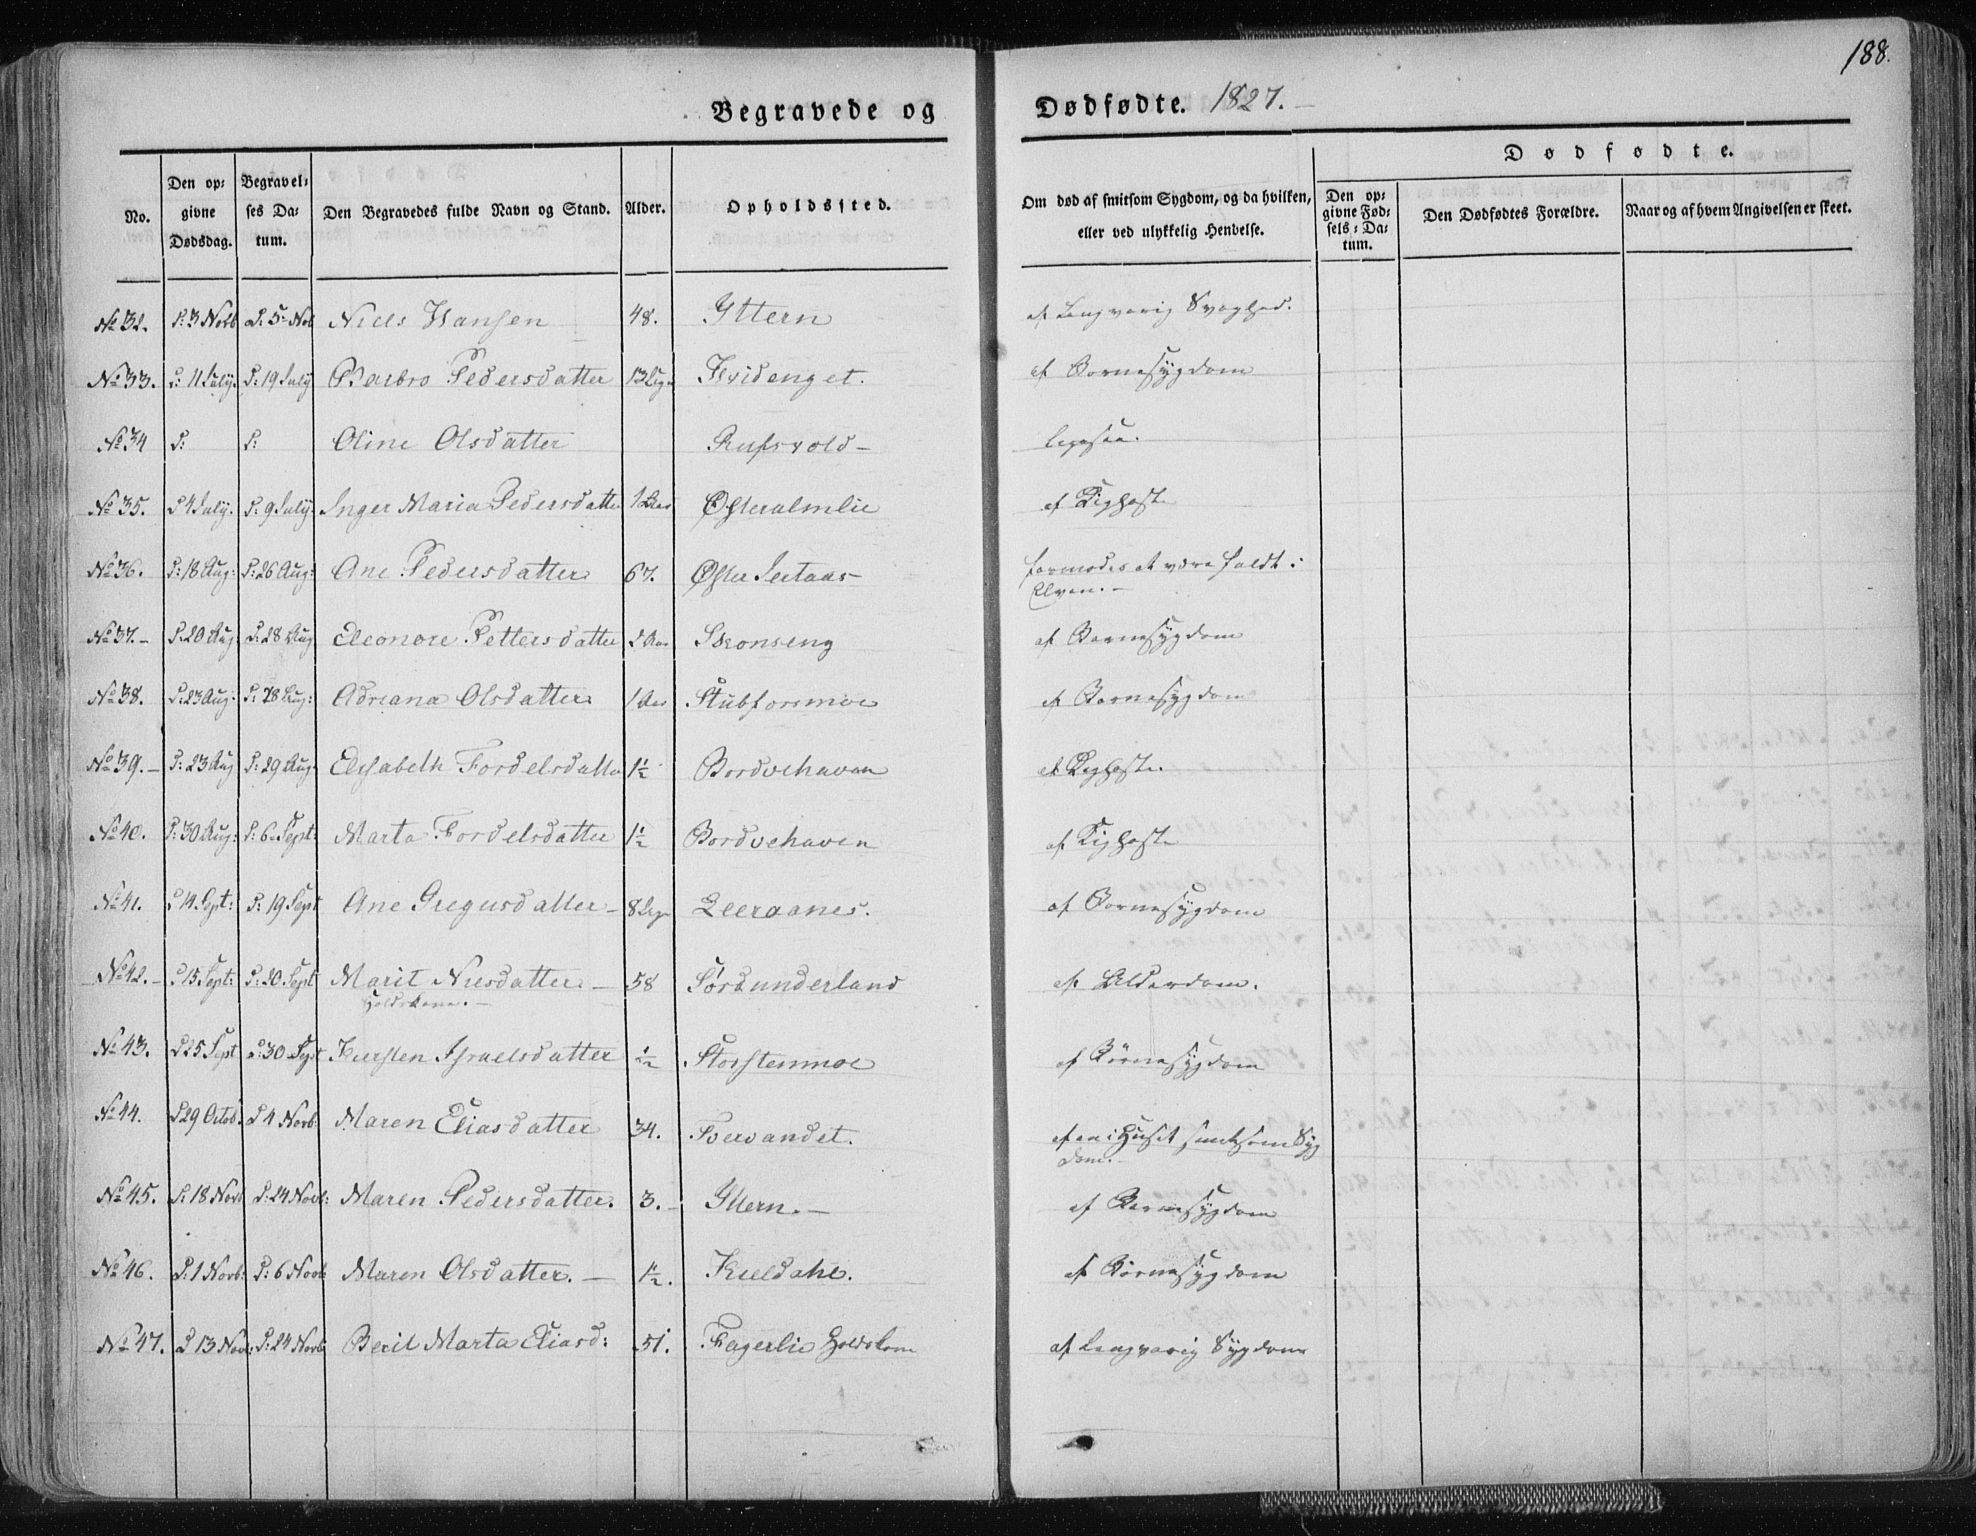 188.
Begravede og Dødfødte. 1827.
Dødfødte.
No.
Den op-
givne
Dødsdag.
Begravel-
ses Da-
tum.
Den Begravedes fulde Navn og Stand.
Alder.
Opholdssted.
Om død af smitsom Sygdom, og da hvilken,
eller ved ulykkelig Hendelse.
Den op-
givne Fød-
sels-Da-
tum.
Den Dødfødtes Forældre.
Naar og af hvem Angivelsen er skeet.
No 32. D: 3 Novb D: 5 Nob Niels Hansen 48. Yttern af Langvarig Svaghed.
No 33. D: 11 July. D: 19 July Barbro Pedersdatter Hvidenget. af Børnesygdom
No 34 D: D: Oline Olsdatter Rusvold
No 35. D 4 July. D: 9 July. Inger Maria Pedersdatter 1 Aar Østeralmlie af Kighoste
No 36. D: 18 Aug: D: 26 Aug: Ane Pedersdatter 67. Øster formodes at være faldt i
Elven.
No 37. D: 20 Aug D: 28 Aug Eleonore Pettersdatter 2 Aar af Børnesygdom
No 38. D: 23 Aug: D: 28 Aug: Adriana Olsdatter 1 Aar Stubforsmoe af Børnesygdom
No 39. D: 23 Aug D: 29 Aug Elisabeth Fordelsdatter 1½ Bordvehaven af Kighoste.
No 40. D: 30 Aug: D: 6 Sept: Marta Fordelsdatter 1½ Bordvehaven af Kighoste
No 41. D 14 Sept: D: 19 Sept Ane Gregusdatter 8 Leeraanes. af Børnesygdom
No 42. D 15 Sept: D: 20 Sept Marit Nilsdatter 58 af Alderdom.
Holdskone.
No 43. D 25 Sept D: 30 Sept Kiersten Israelsdatter ½ Storstenmoe af Børnesygdom
No 44. D 29 Octob. D 4 Novb: Maren Eliasdatter 34. Tvervandet. af en i Huset smitsom Syg
dom.
No 45. D: 18 Novb D: 24 Novb: Maren Pedersdatter. 3. Yttern. af Børnesygdom
No 46. D: 1 Novb: D: 6 Novb Maren Olsdatter. 1½. Kieldahl. af Børnesygdom
No 47. D 13 Nov: D: 24 Novb Berit Marta Eliasd: 51. Fagerlie Holdskone af Langvarig Sygdom